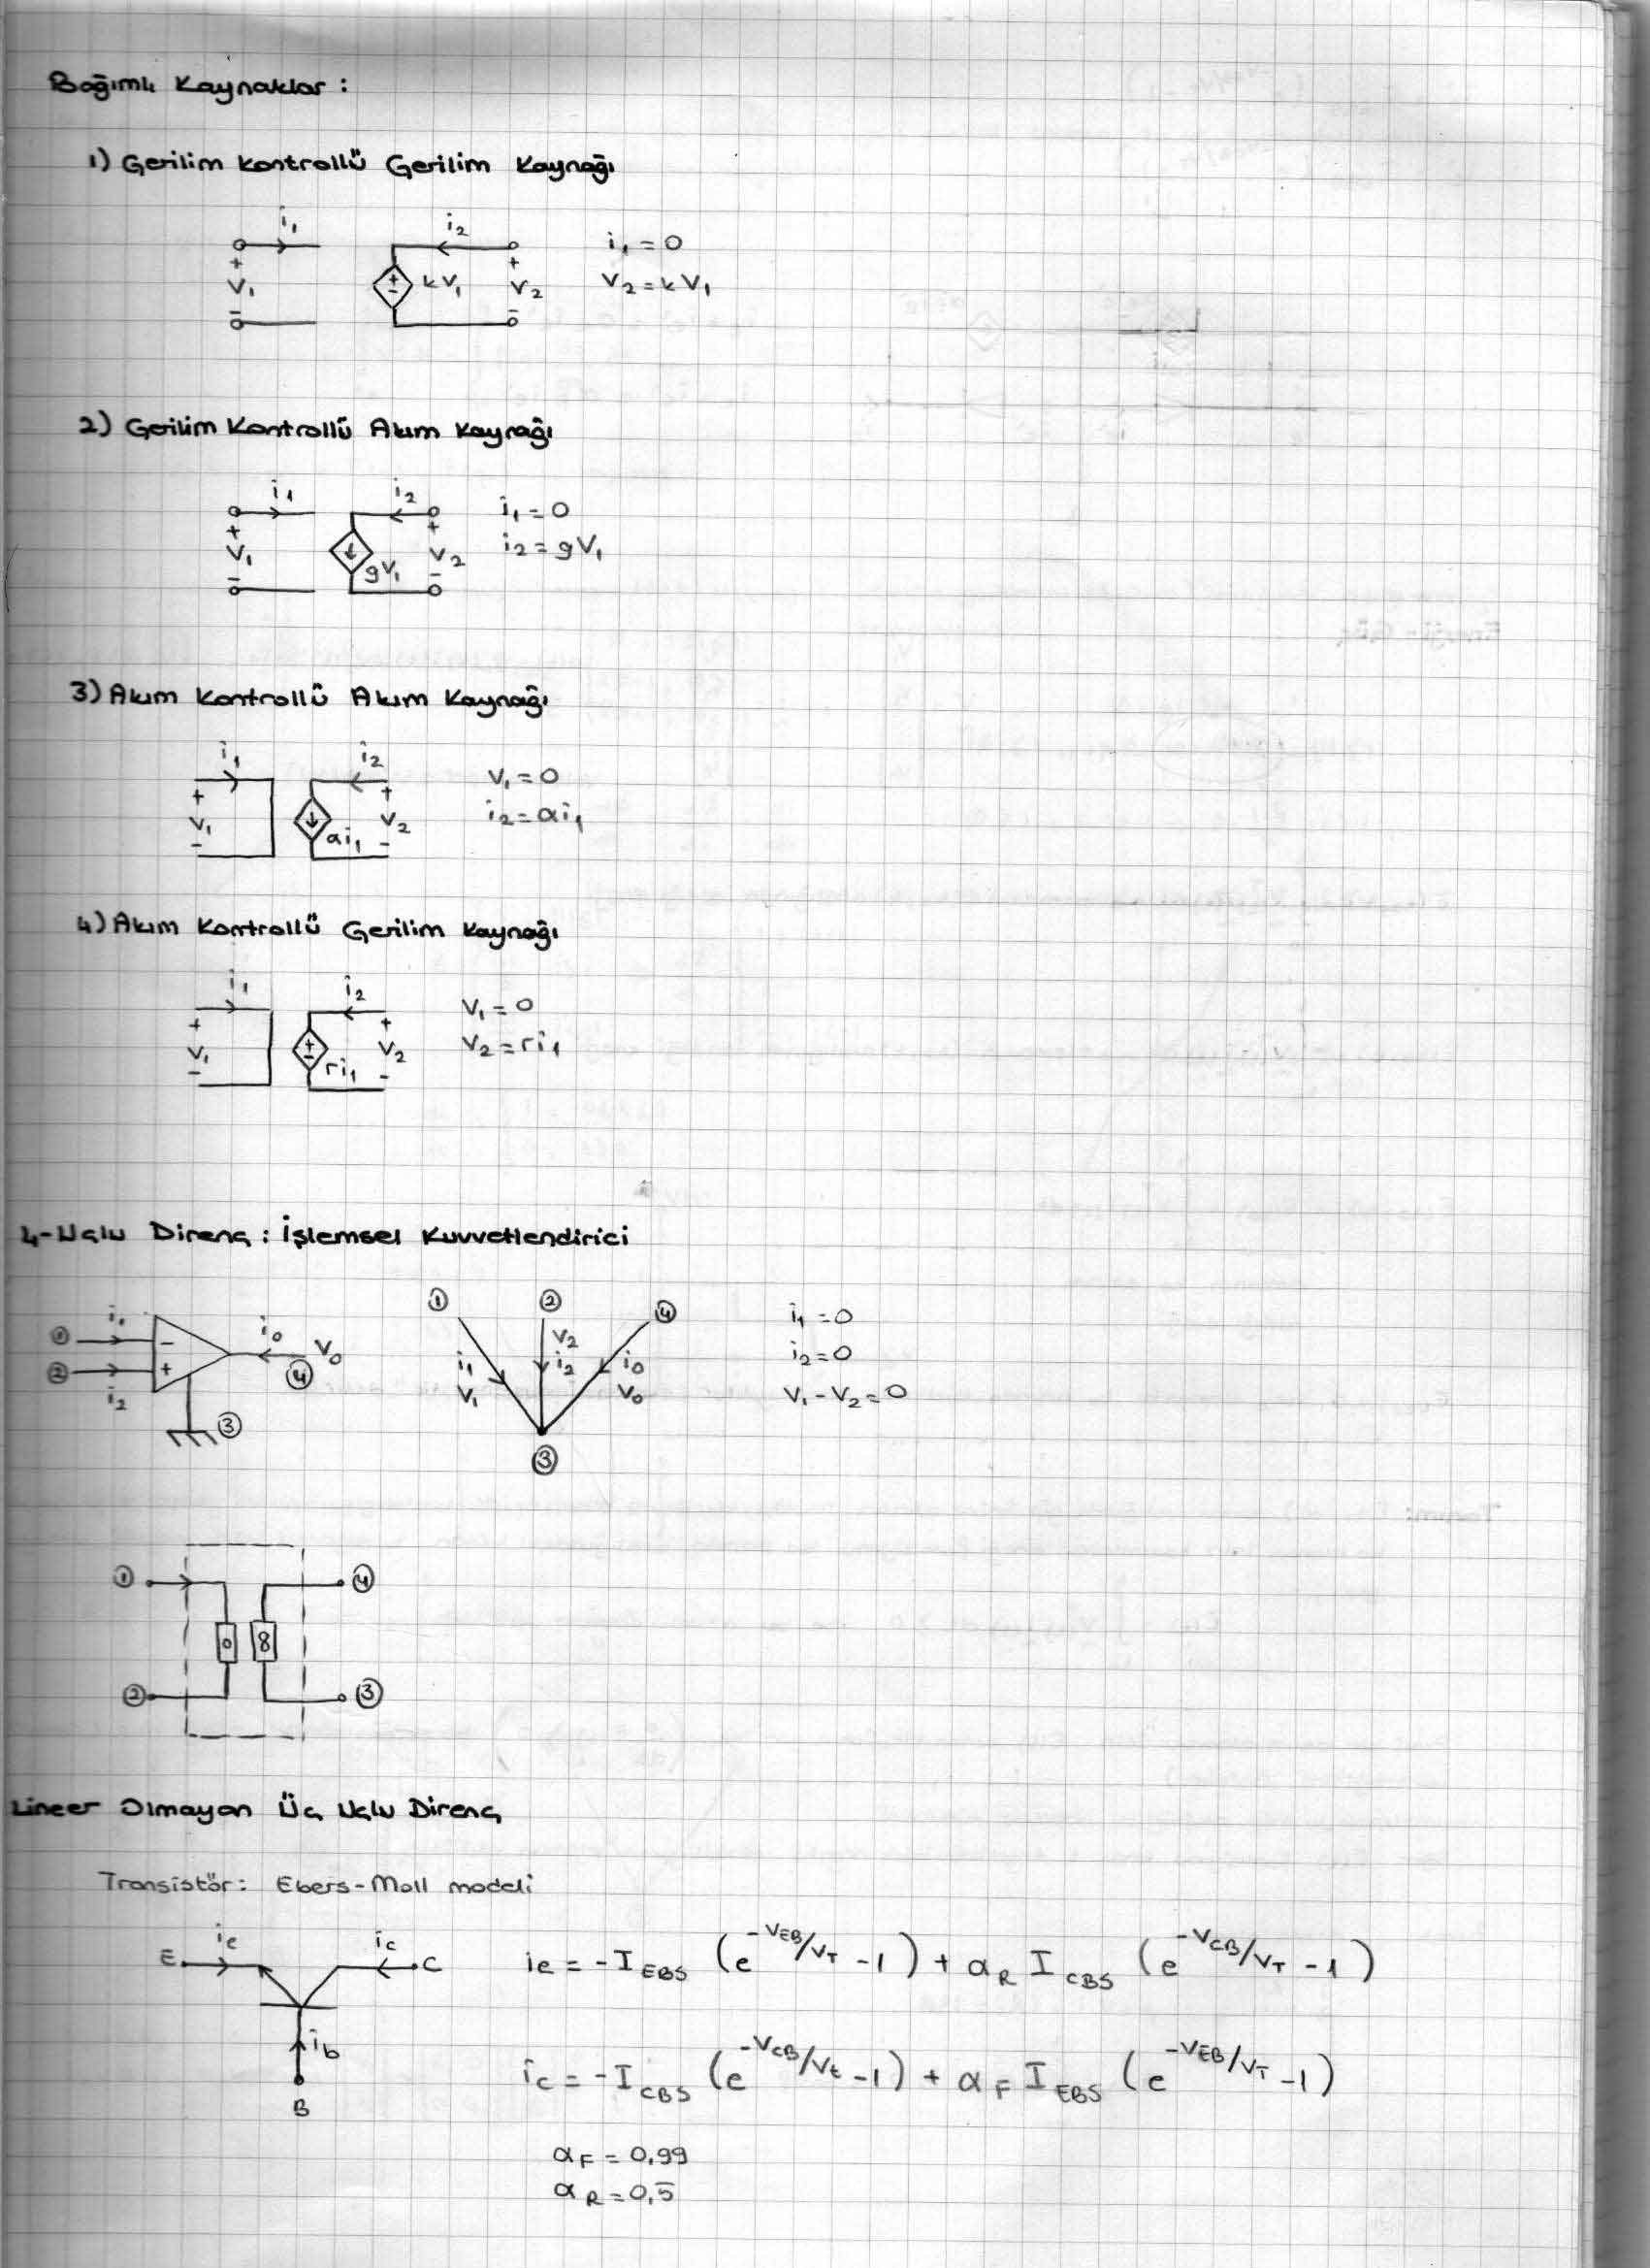 Bağımlı Kaynaklar :
1) Gerilim kontrollü Gerilim Kaynağı
i₁ i₂
+ V₁ - + - kV₁ + V₂ -
i₁ = 0
V₂ = kV₁
2) Gerilim Kontrollü Akım Kaynağı
i₁ i₂
+ V₁ - gV₁ + V₂ -
i₁ = 0
i₂ = gV₁
3) Akım Kontrollü Akım Kaynağı
i₁ i₂
+ V₁ - αi₁ + V₂ -
V₁ = 0
i₂ = αi₁
4) Akım Kontrollü Gerilim Kaynağı
i₁ i₂
+ V₁ - + - ri₁ + V₂ -
V₁ = 0
V₂ = ri₁
4-Uçlu Direnç : İşlemsel Kuvvetlendirici
① i₁ - i₀ V₀
② i₂ + ④
③
① ② ④
i₁ V₁ V₂ i₂ i₀ V₀
③
i₁ = 0
i₂ = 0
V₁ - V₂ = 0
① ④
0 8
② ③
Lineer Olmayan Üç Uçlu Direnç
Transistör: Ebers-Moll modeli
E ie ic C
ib
B
ie = -I_EBS (e^(-V_EB/V_T) -1) + α_R I_CBS (e^(-V_CB/V_T) -1)
ic = -I_CBS (e^(-V_CB/V_t) -1) + α_F I_EBS (e^(-V_EB/V_T) -1)
α_F = 0,99
α_R = 0,5